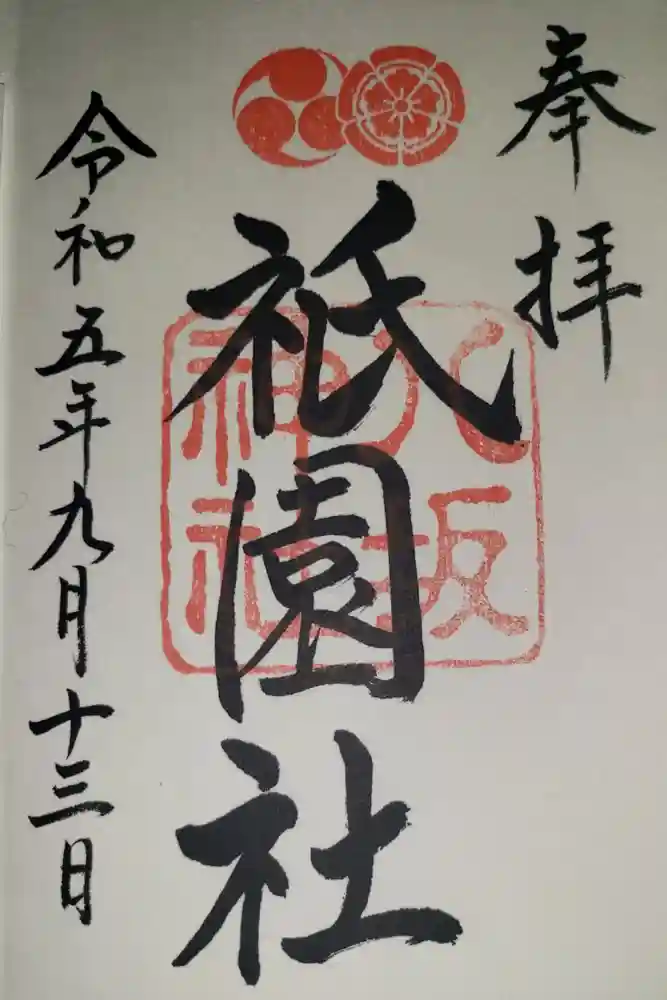 奉拝
祇園社
八坂
神社
令和五年九月十三日